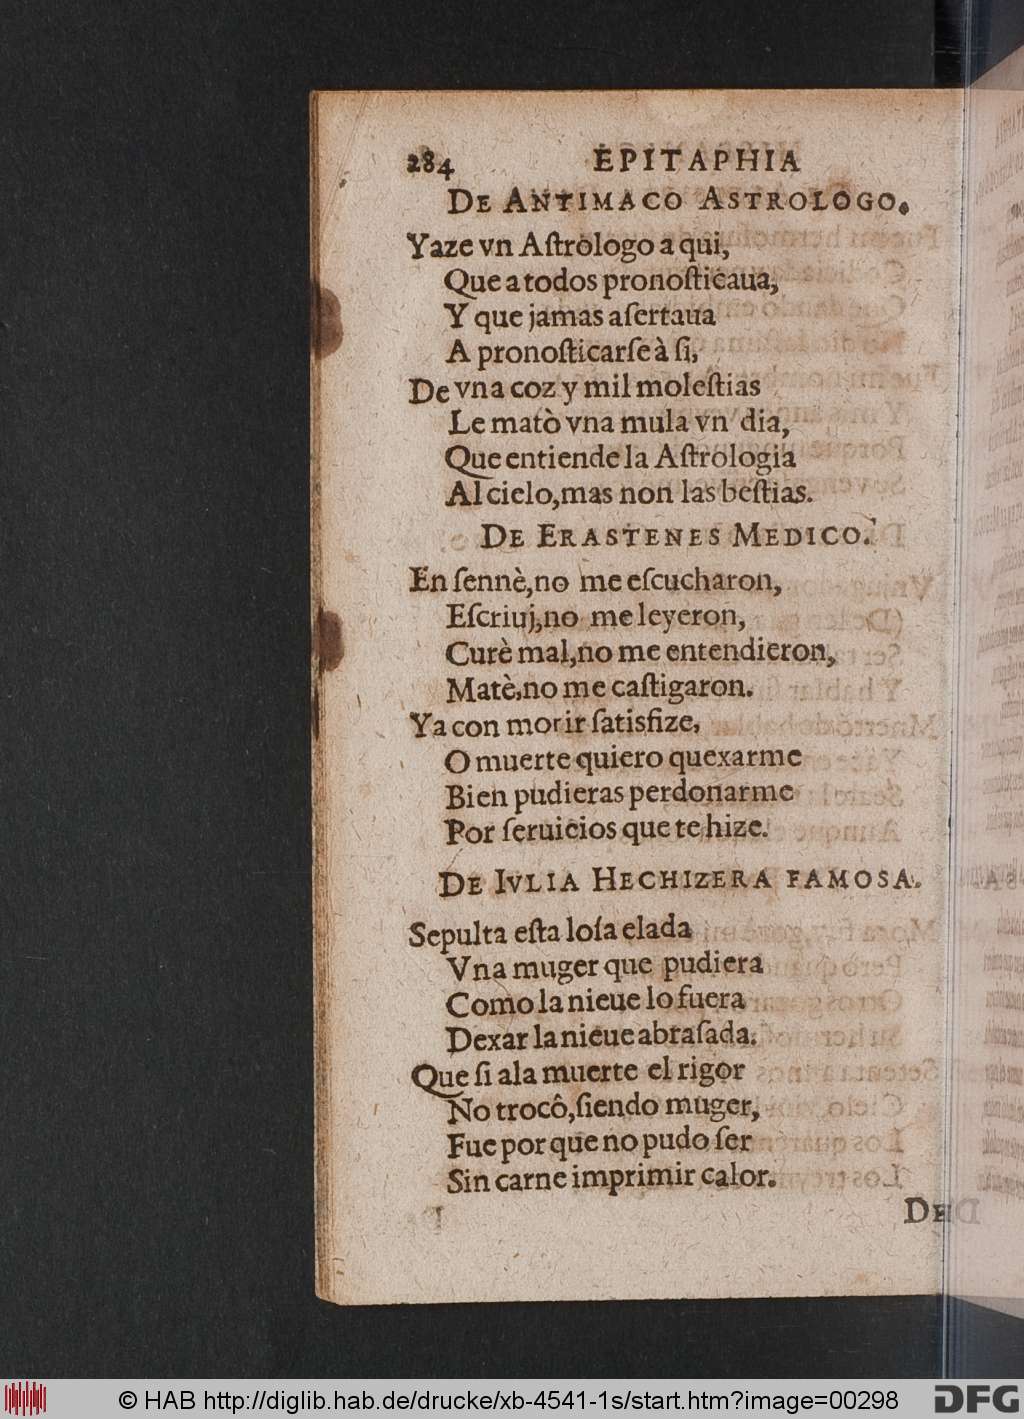 284 EPITAPHIA
DE ANTIMACO ASTROLOGO.
Yaze vn Aſtrologo a qui,
Que a todos pronoſticaua,
Y que jamas aſertaua
A pronoſticarſe à ſi,
De vna coz y mil moleſtias
Le matò vna mula vn dia,
Que entiende la Aſtrologia
Al cielo, mas non las beſtias.
DE ERASTENES MEDICO.
En ſennè, no me eſcucharon,
Eſcriuj, no me leyeron,
Curè mal, no me entendieron,
Matè, no me caſtigaron.
Ya con morir ſatisfize,
O muerte quiero quexarme
Bien pudieras perdonarme
Por ſeruicios que te hize.
DE IVLIA HECHIZERA FAMOSA.
Sepulta eſta loſa elada
Vna muger que pudiera
Como la nieue lo fuera
Dexar la nieue abraſada.
Que ſi ala muerte el rigor
No trocô, ſiendo muger,
Fue por que no pudo ſer
Sin carne imprimir calor.
DE
© HAB http://diglib.hab.de/drucke/xb-4541-1s/start.htm?image=00298 DFG